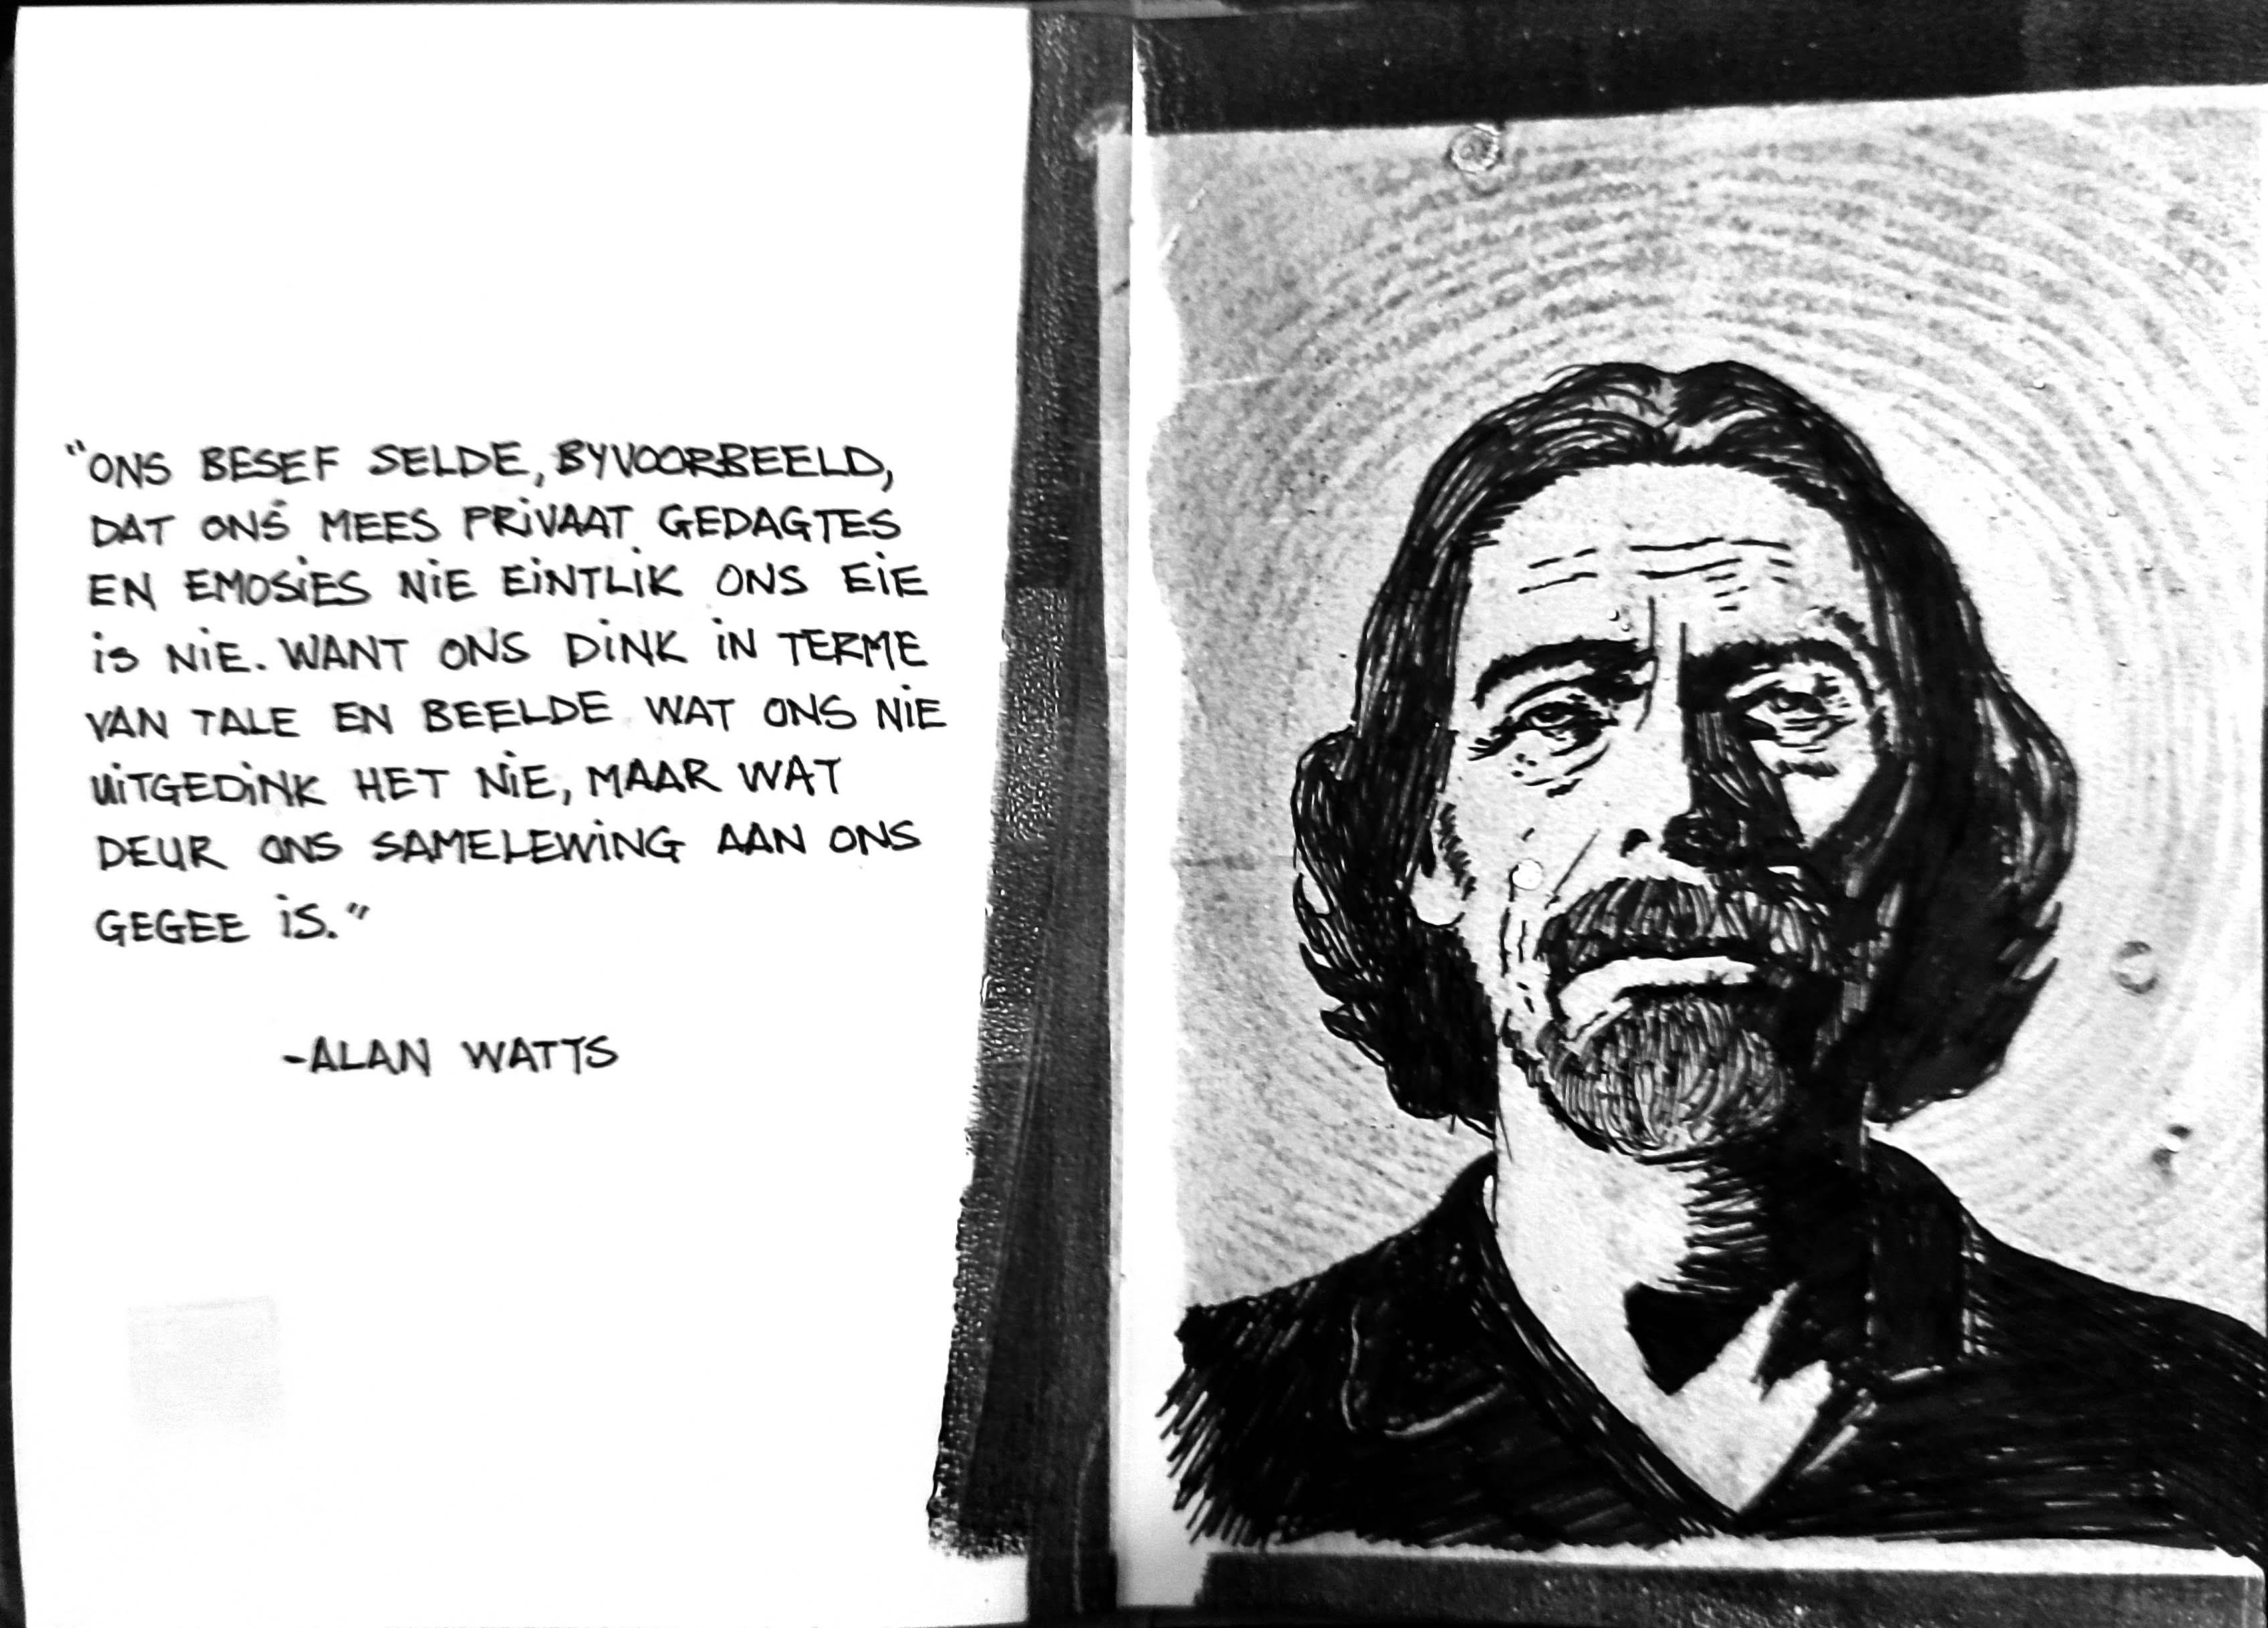 "ONS BESEF SELDE, BYVOORBEELD,
DAT ONS MEES PRIVAAT GEDAGTES
EN EMOSIES NIE EINTLIK ONS EIE
IS NIE. WANT ONS DINK IN TERME
VAN TALE EN BEELDE WAT ONS NIE
UITGEDINK HET NIE, MAAR WAT
DEUR ONS SAMELEWING AAN ONS
GEGEE IS."
-ALAN WATTS